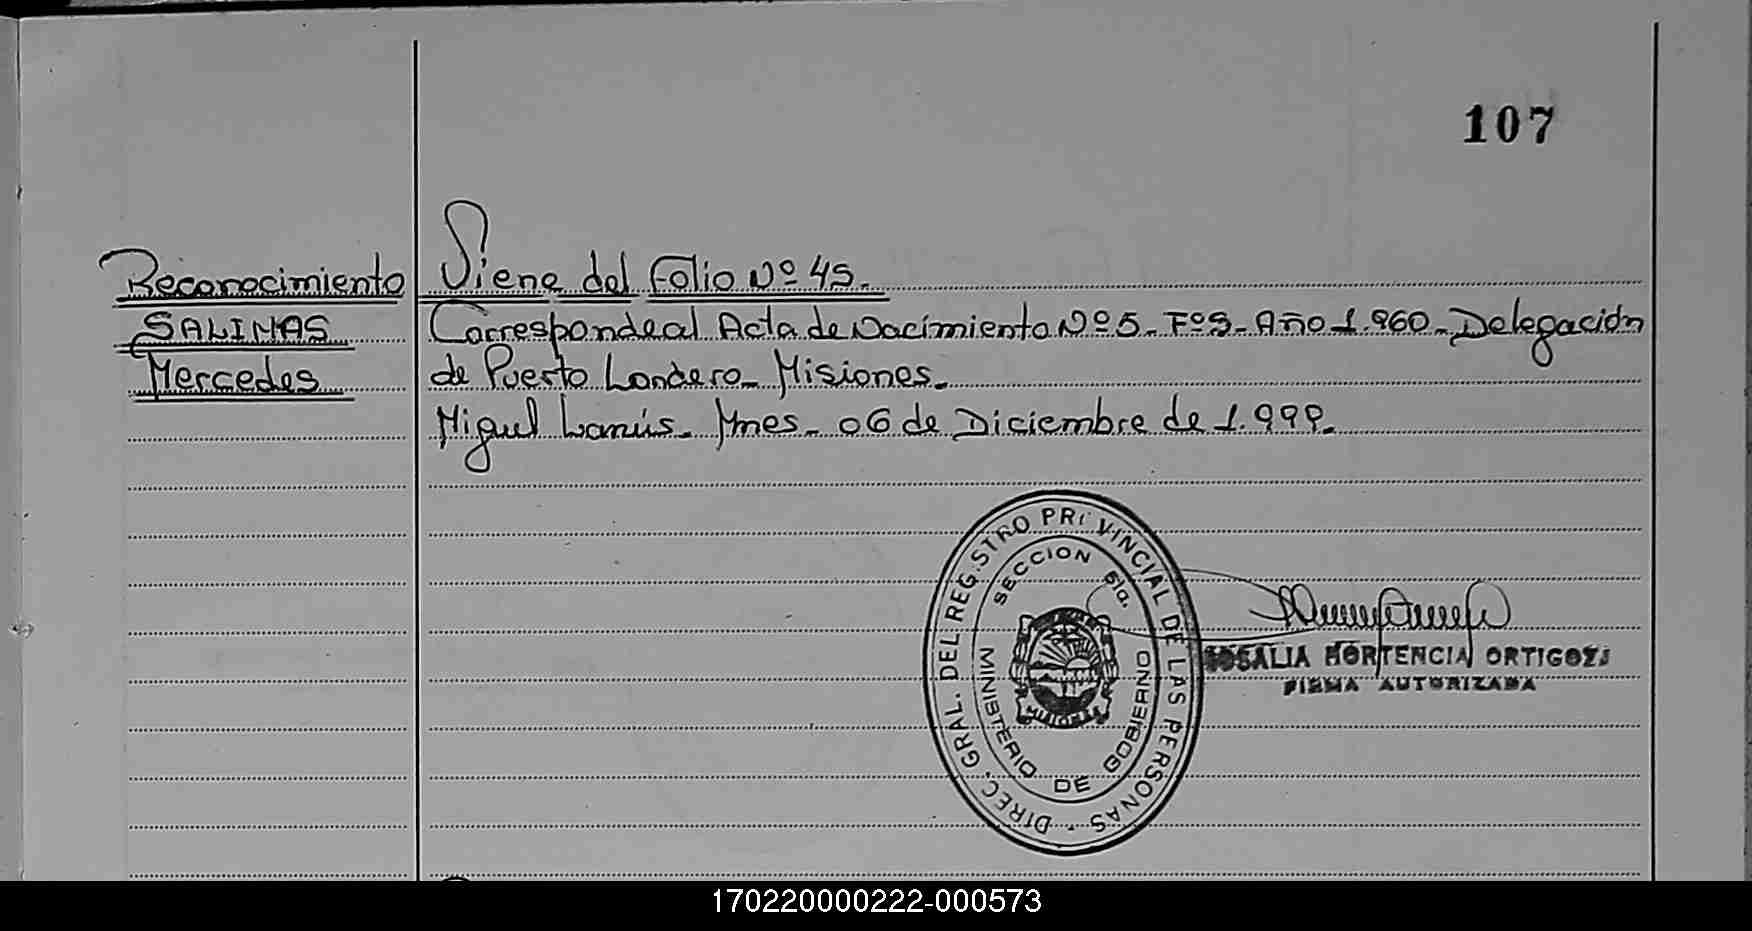 107
Reconocimiento
SALINAS
Mercedes
Viene del Folio Nº 45.
Corresponde al Acta de Nacimiento Nº 5 - Fº 9 - Año 1.960 - Delegación
de Puerto Londero - Misiones.
Miguel Lanús - Mnes - 06 de Diciembre de 1.999.
DIREC. GRAL. DEL REG.STRO PROVINCIAL DE LAS PERSONAS
SECCION 51a.
MINISTERIO DE GOBIERNO
MISIONES
ROSALIA HORTENCIA ORTIGOZA
FIRMA AUTORIZADA
170220000222-000573